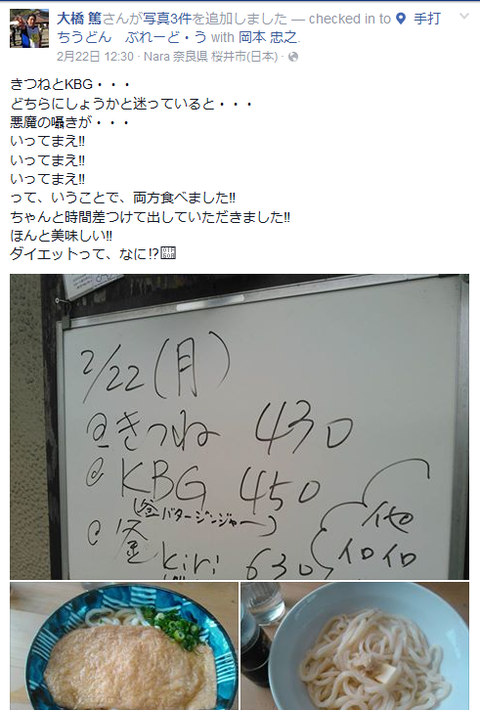 大橋 篤さんが写真3件を追加しました — checked in to 手打
ちうどん　ぶれーど・う with 岡本 忠之.
2月22日 12:30 · Nara 奈良県 桜井市(日本) ·
きつねとKBG・・・
どちらにしょうかと迷っていると・・・
悪魔の囁きが・・・
いってまえ!!
いってまえ!!
いってまえ!!
って、いうことで、両方食べました!!
ちゃんと時間差つけて出していただきました!!
ほんと美味しい!!
ダイエットって、なに!?
2/22(月)
@きつね 430
@KBG 450
(釜バタージンジャー)
@釜kiri 630
他
イロイロ